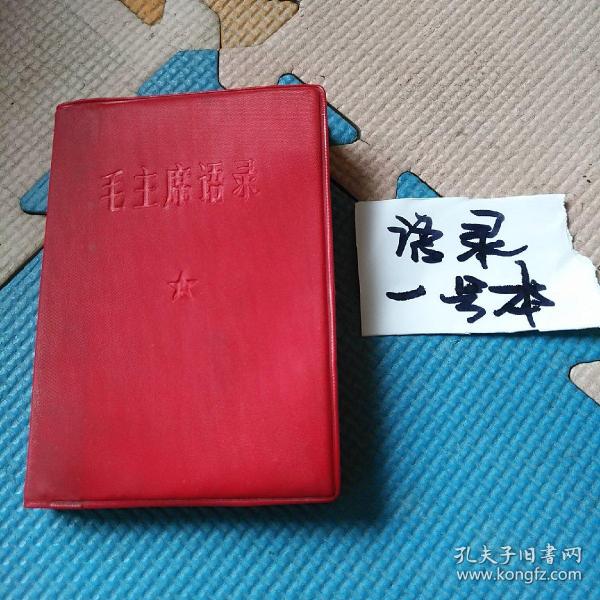 毛主席语录
语录
一号本
孔夫子旧書网
www.kongfz.com